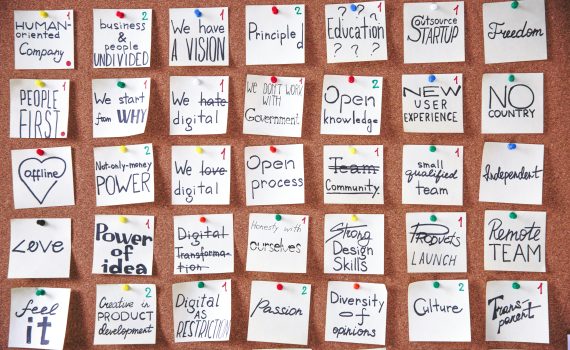 HUMAN-
oriented
Company
business
& people
UNDIVIDED
2
We have
A VISION
1
Principle
d
Education
? ? ? ? ? ?
Outsource
STARTUP
1
Freedom
PEOPLE
FIRST
We start
from WHY
1
We hate
digital
1
We DON'T WORK
WITH
Government
1
Open
knowledge
2
NEW
USER
EXPERIENCE
1
NO
COUNTRY
offline
Not-only-money
POWER
2
We love
digital
1
Open
process
1
Team
Community
1
small
qualified
team
1
Independent
Love
Power of
idea
2
Digital
Transforma-
tion
Honesty with
ourselves
1
Strong
Design
Skills
Products
LAUNCH
1
Remote
TEAM
feel
it
Creative in
PRODUCT
development
2
Digital
AS
RESTRICTION
1
Passion
2
Diversity
of
opinions
Culture
2
Trans
parent
1